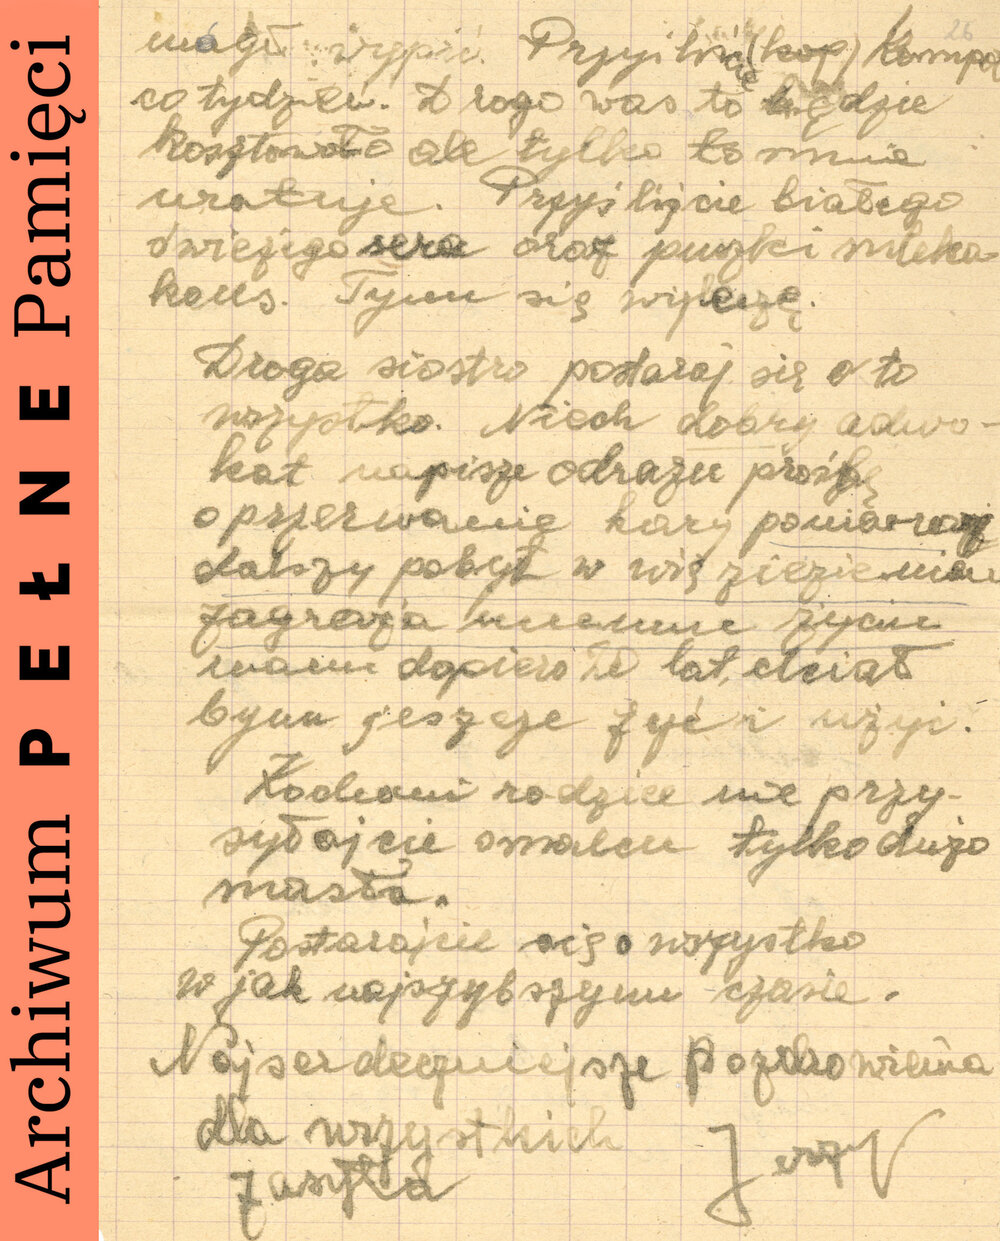 Archiwum PEŁNE Pamięci
26
Przyślijcie (kop) kompot
co tydzień. Drogo was to będzie
kosztowało ale tylko to mnie
uratuje. Przyślijcie białego
świeżego sera oraz puszki mleka
kons. Tym się wyleczę.
Droga siostro postaraj się o to
wszystko. Niech dobry adwo-
kat napisze odrazu prośbę
o przerwanie kary ponieważ
dalszy pobyt w więzieniu
zagraża memu życiu
mam dopiero lat, chciał
bym jeszcze żyć i użyć.
Kochani rodzice nie przy-
syłajcie smalcu tylko dużo
masła.
Postarajcie się o wszystko
w jak najszybszym czasie.
Najserdeczniejsze pozdrowienia
dla wszystkich
zasyła Jerzy